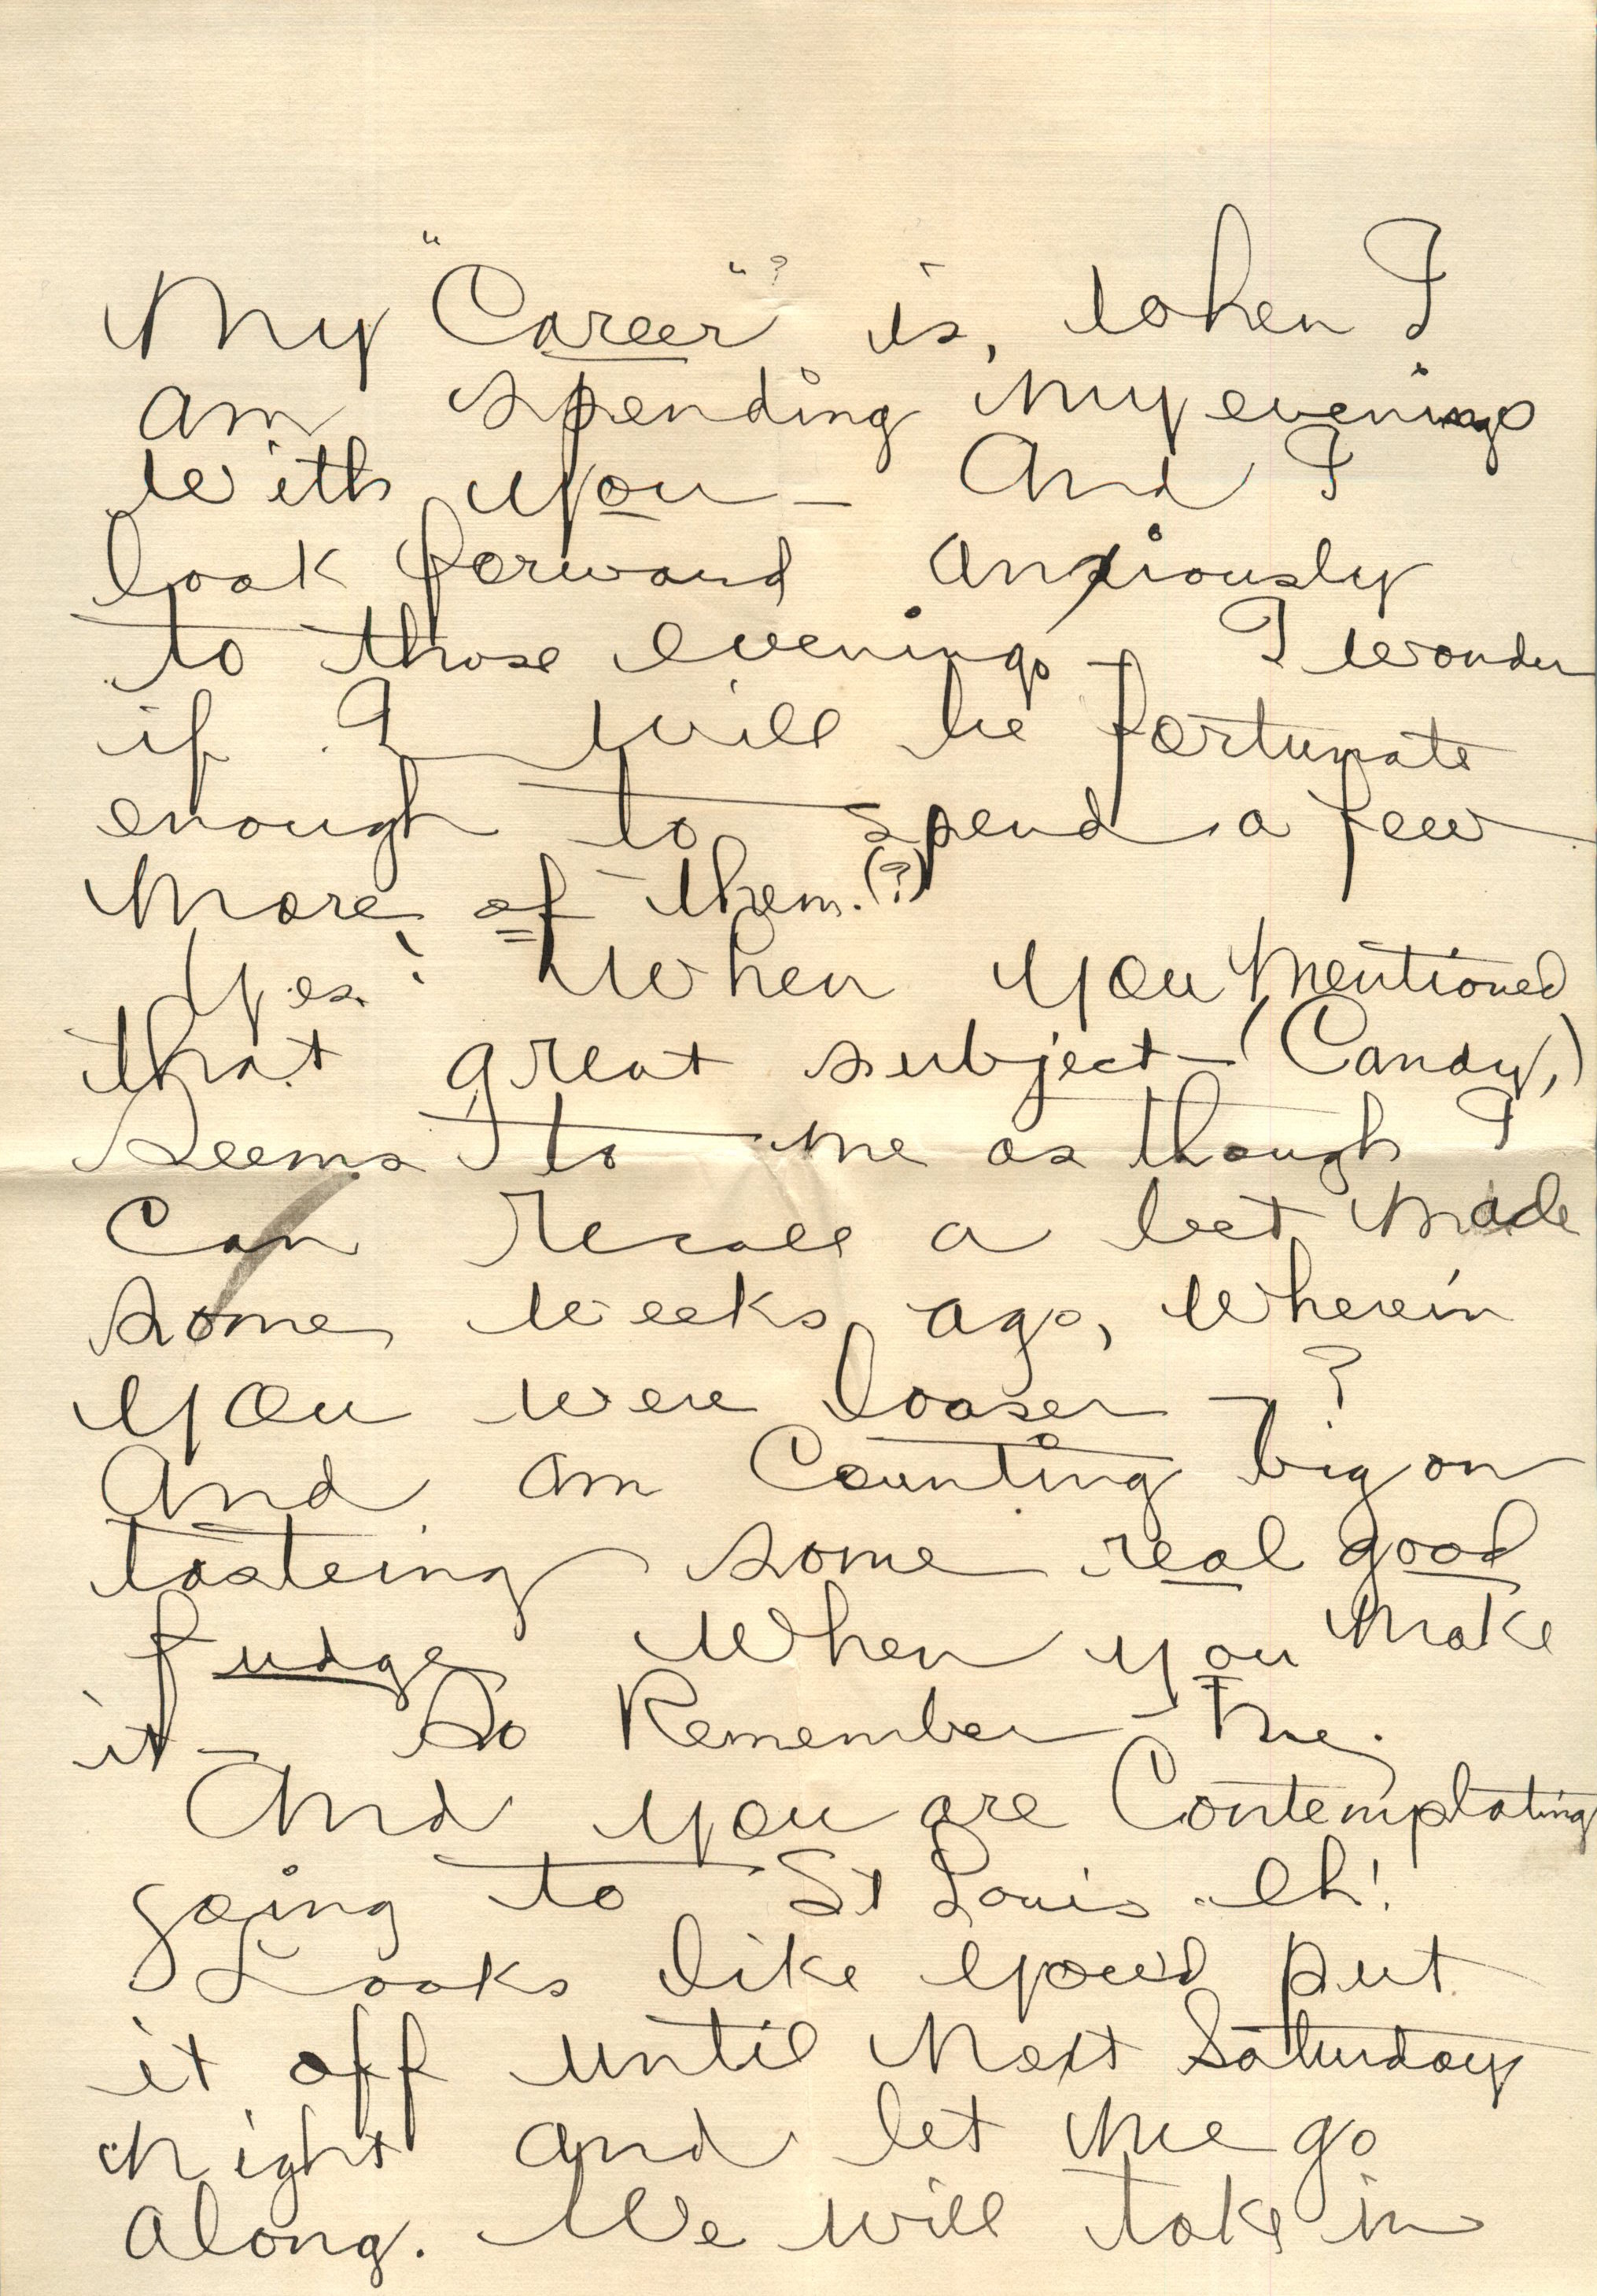 My "Career"? is, when I
am spending my evenings
with you – And I
look forward anxiously
to those evenings – I wonder
if I will be fortunate
enough to spend a few
more of them.(?)
Yes! When you mentioned
that great subject – (Candy,)
Seems to me as though I
Can recall a bet made
some weeks ago, wherein
you were looser – ?
And am Counting big on
tasteing some real good
fudge when you make
it – So Remember me.
And you are Contemplating
going to St Louis eh!
Looks like you'd put
it off until next Saturday
night and let me go
along. We will take in